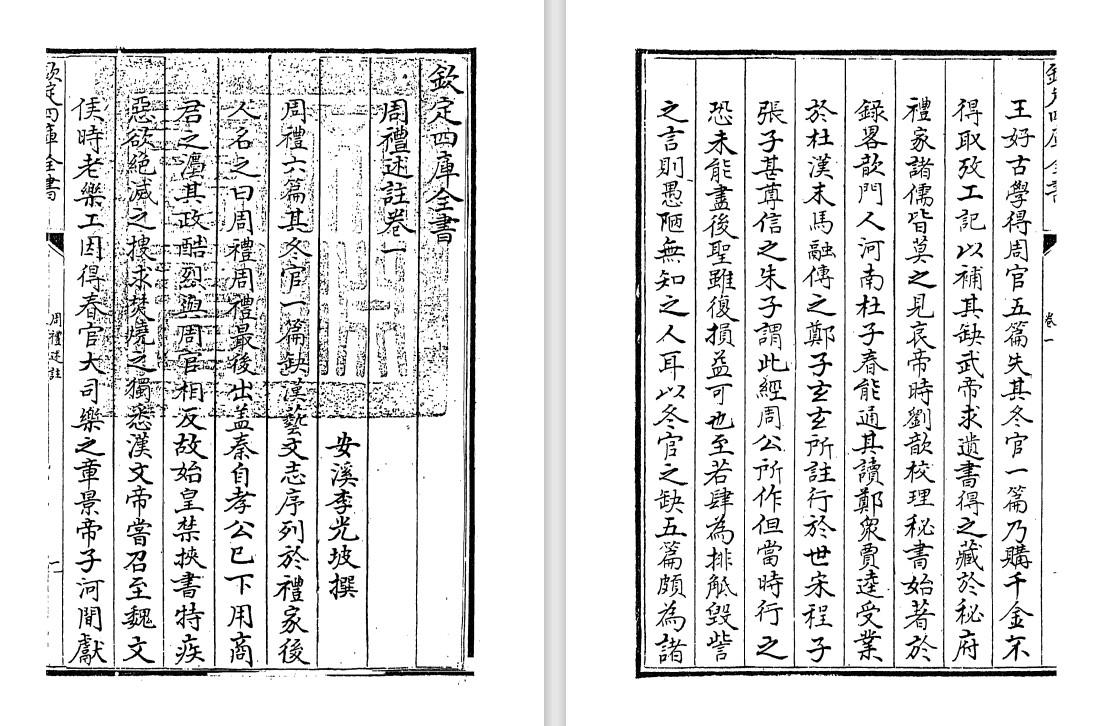 欽定四庫全書
周禮述註卷一
安溪李光坡撰
周禮六篇其冬官一篇缺漢藝文志序列於禮家後
人名之曰周禮周禮最後出盖秦自孝公已下用商
君之灋其政酷烈與周官相反故始皇禁挾書特疾
惡欲絶滅之搜求焚燒之獨悉漢文帝嘗召至魏文
侯時老樂工因得春官大司樂之章景帝子河間獻
欽定四庫全書
周禮述註
欽定四庫全書
卷一
王好古學得周官五篇失其冬官一篇乃購千金不
得取攷工記以補其缺武帝求遺書得之藏於秘府
禮家諸儒皆莫之見哀帝時劉歆校理秘書始著於
録畧歆門人河南杜子春能通其讀鄭衆賈逵受業
於杜漢末馬融傳之鄭子玄玄所註行於世宋程子
張子甚尊信之朱子謂此經周公所作但當時行之
恐未能盡後聖雖復損益可也至若肆為排觝毀訾
之言則愚陋無知之人耳以冬官之缺五篇頗為諸